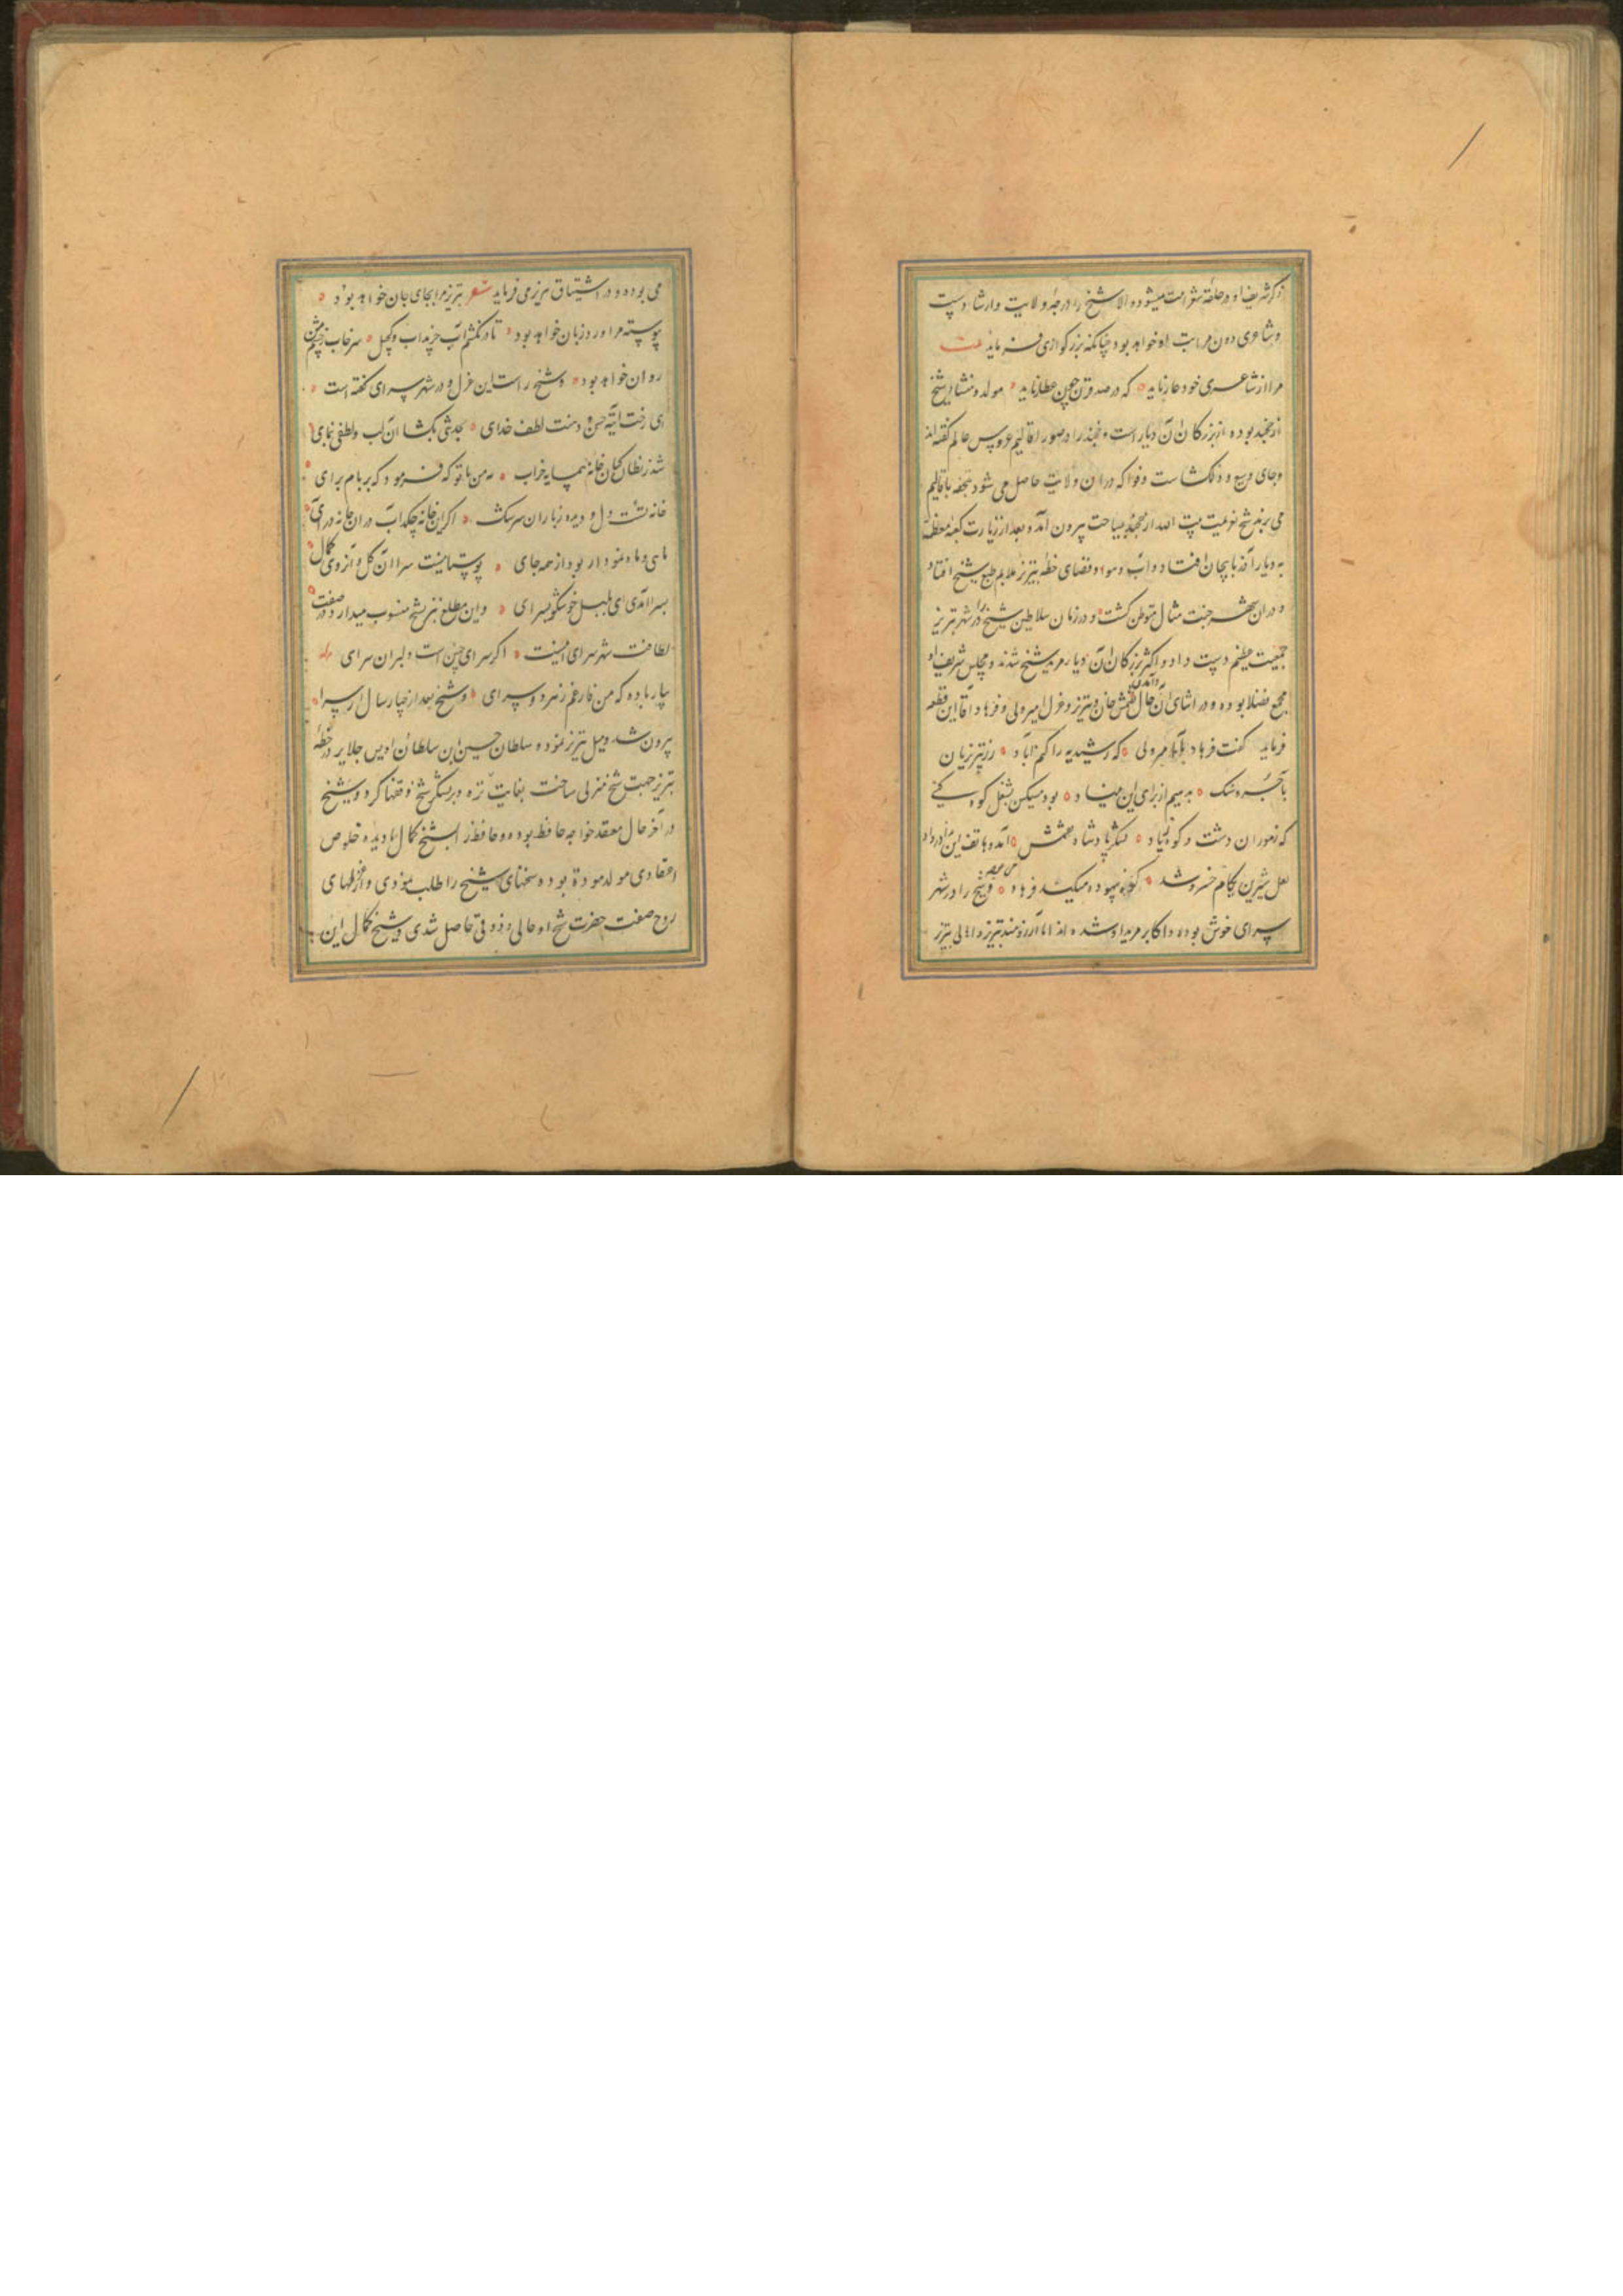 ذکر شریف او در حلقهٔ شعرا ثبت میشود و الا شیخ را درجهٔ ولایت و ارشادست
و شاعری دون مراتب او خواهد بود چنانکه بزرگواری فرماید بیت
مرا از شاعری خود عار ناید که در صد قرن چون عطار ناید مولد و منشا شیخ
از خجند بوده از بزرکان آن دیار است و خجند را در صور اقالیم عروس عالم گفته اند
و جای وسیع و دلکشاست و فواکه در ان ولایت حاصل می شود تحفه باقالیم
می برند شیخ بعزیمت بیت الله از خجند بسیاحت بیرون آمد و بعد از زیارت کعبه معظمه
به دیار آذربایجان افتاد و آب و هوا و فضای خطه تبریز ملایم طبع شیخ افتاد
و در ان شهر جنت مثال متوطن کشت و در زمان سلاطین شیخ را در شهر تبریز
جمعیت عظیم دست داد و اکثر بزرکان آن دیار مرید شیخ شدند و مجلس شریف او
مجمع فضلا بوده و در اثنای آن حال آمدن تقتمش خان به تبریز و غزل امیر ولی و فرهاد آقا این قطعه
فرماید گفت فرهاد آقا بمیر ولی که رشیدیه را کنم آباد زر بتبریزیان
بآجر و سنک بدهیم از برای این بنیاد بود مسکین بشغل کوه کنی
که ز موران دشت و کوه زیاد لشکر پادشاه تقتمش آمد و هاتف این ندا در داد
لعل شیرین بکام خسرو شد کوه بیهوده میکند فرهاد و شیخ را در شهر
سرای خوش بوده و اکابر مرید او شده اند اما آرزومند تبریز و اهالی تبریز
می بوده و در اشتیاق تبریز می فرماید شعر تبریز مرا بجای جان خواهد بود
پیوسته مرا ورد زبان خواهد بود تا در نکشم آب چرنداب و گجل سرخاب ز چشم من
روان خواهد بود و شیخ راست این غزل و در شهر سرای گفته است
ای رخت آیت حسن و دهنت لطف خدای بحدیثی بکشا آن لب و لطفی بنمای
شد ز نظارگیان خانه همسایه خراب به من با تو که فرمود که بر بام برای
خانه تست دل و دیده ز باران سرشک اکر این خانه چکد آب در ان خانه درآی
ماهی و ماه نمودار بود از همه جای بوستانیست سرا آن کل و آرزوی کمال
بسرا آمدی ای بلبل خوشگو بسرای و این مطلع نیز بشیخ منسوب میدارد و در صفت
لطافت شهر سرای اینست اکر سرای چنین است و دلبران سرای وله
بیار باده که من فارغم ز هر دو سرای و شیخ بعد از چهار سال از سرا
بیرون شد و میل تبریز نمود و سلطان حسین بن سلطان اویس جلایر در خطهٔ
تبریز جهت شیخ منزلی ساخت بغایت نزه و بر لنگر شیخ وقفها کرد و شیخ
در آخر حال معتقد خواجه حافظ بوده و حافظ نیز با شیخ کمال نادیده خلوص
اعتقادی مولد موده بوده و سخنهای شیخ را طلب نمودی و از غزلهای
روح صفت حضرت شیخ او حالی و ذوقی حاصل شدی و شیخ کمال این